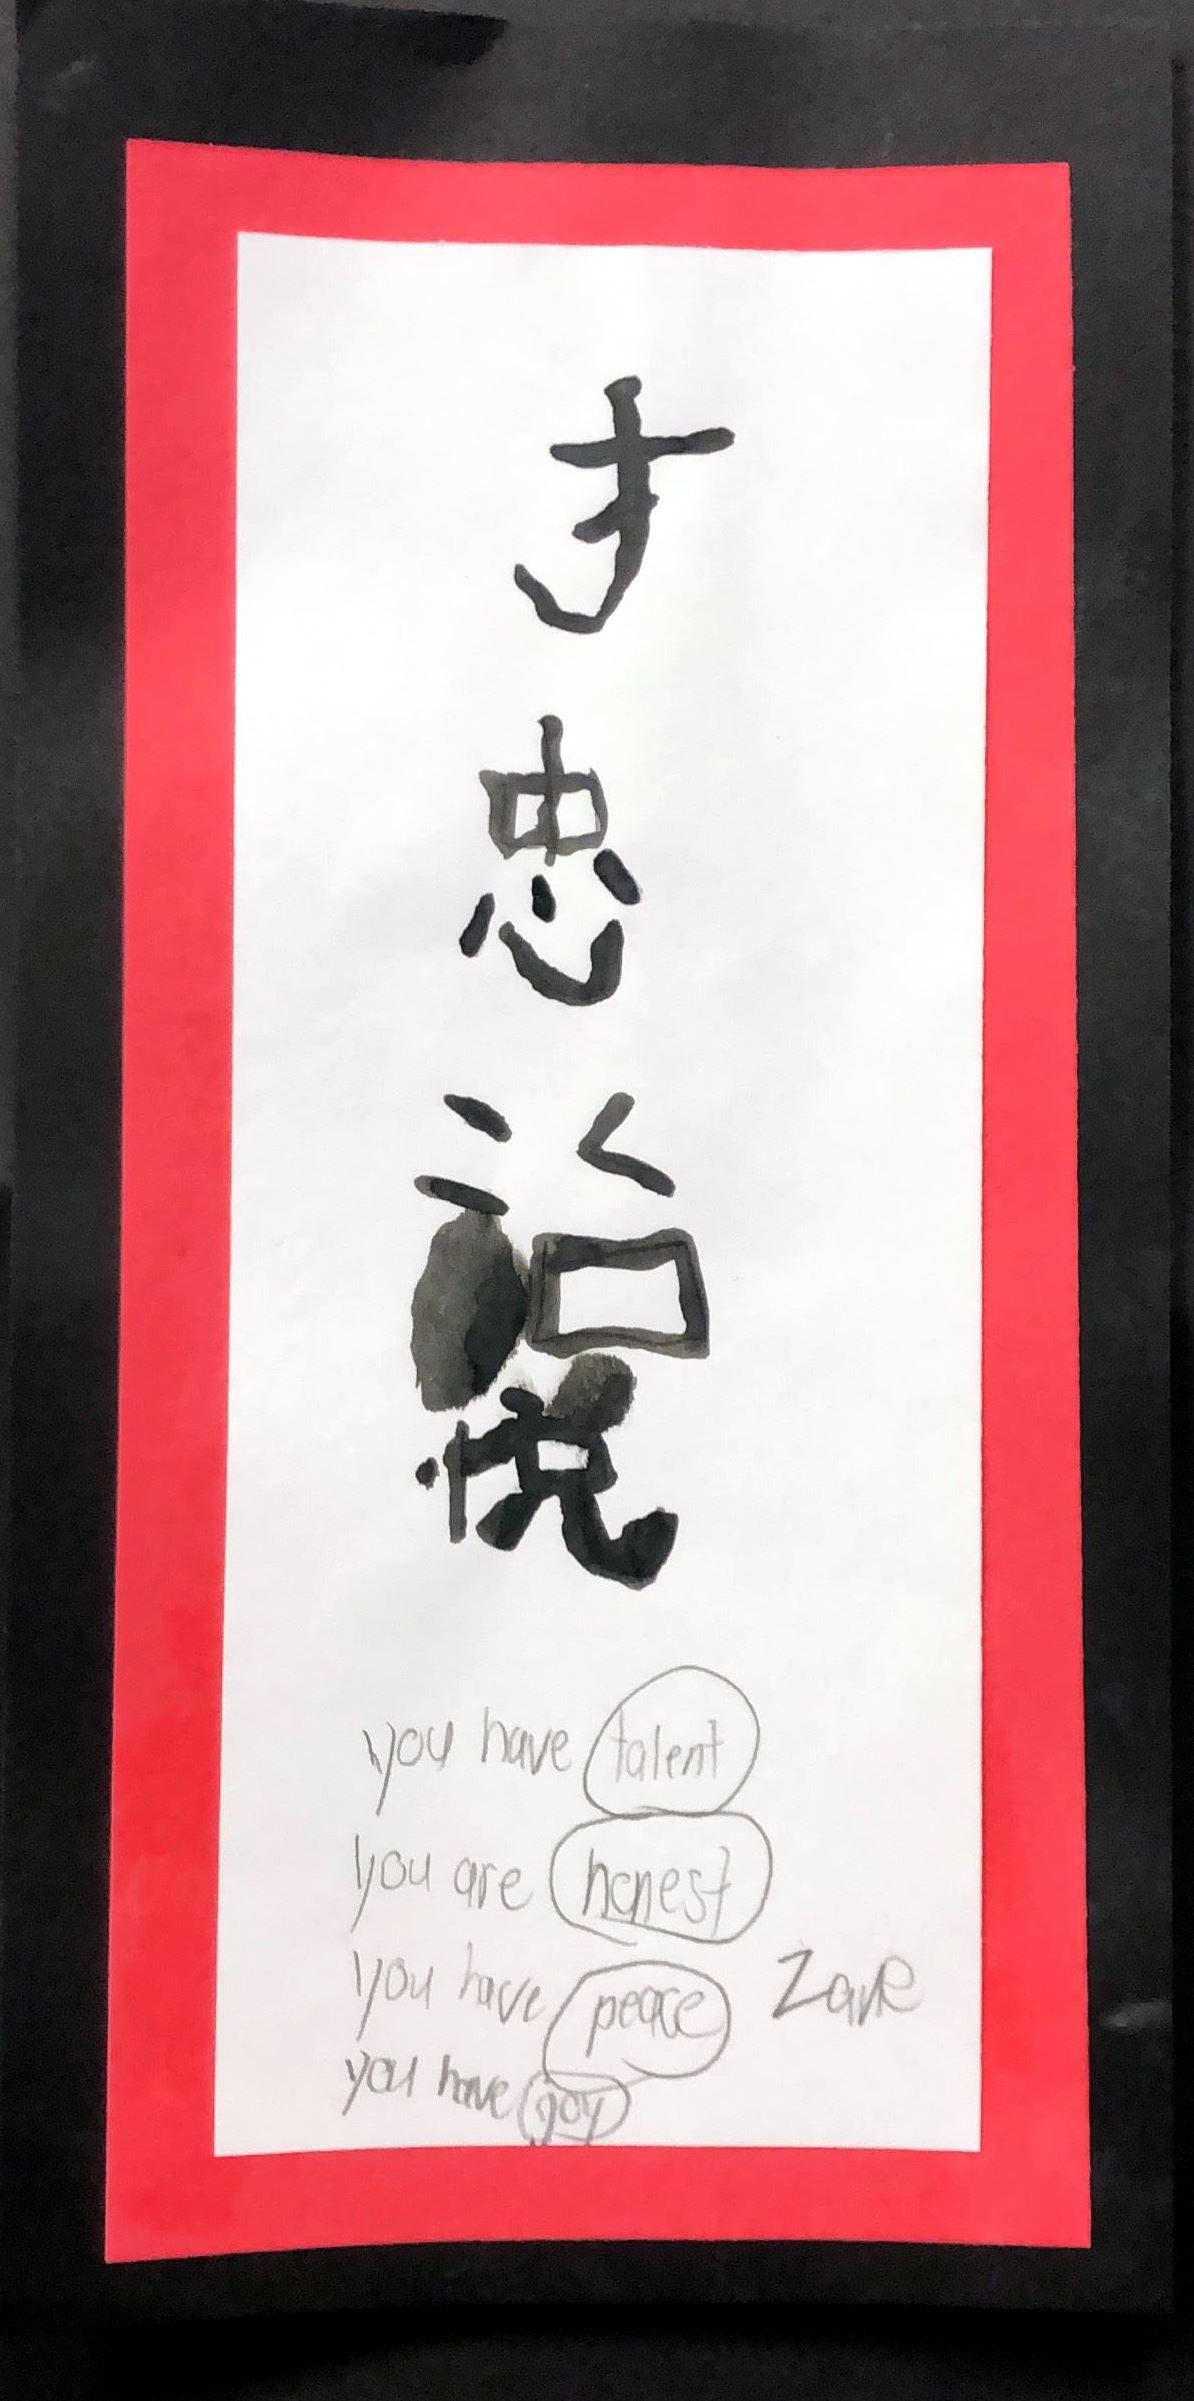 才
忠
治
悦
you have talent
you are honest
you have peace
you have joy
Zane